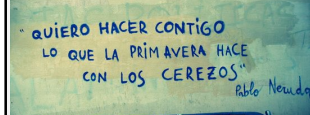 "QUIERO HACER CONTIGO
LO QUE LA PRIMAVERA HACE
CON LOS CEREZOS"
Pablo Neruda